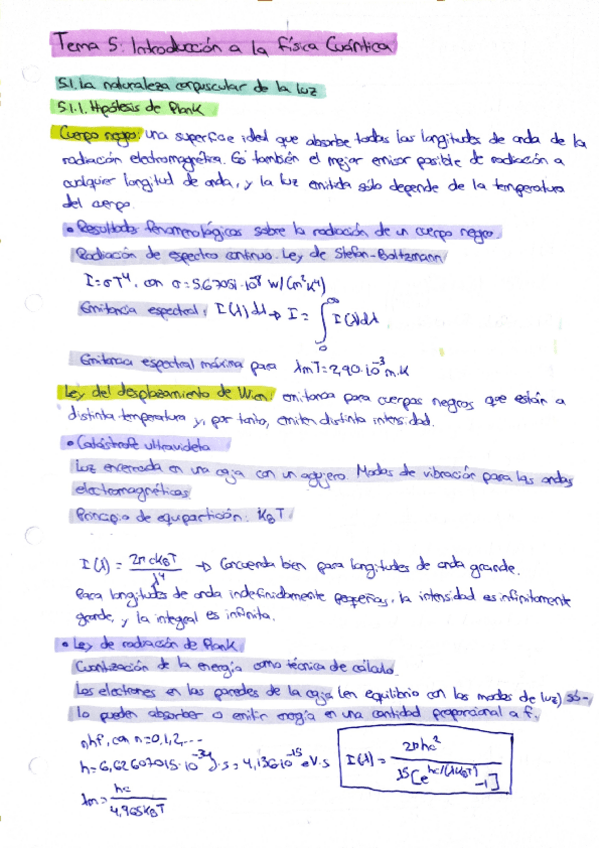 Tema 5: Introducción a la Física Cuántica
5.1. La naturaleza corpuscular de la luz
5.1.1. Hipótesis de Plank
Cuerpo negro: una superficie ideal que absorbe todas las longitudes de onda de la
radiación electromagnética. Es también el mejor emisor posible de radiación a
cualquier longitud de onda, y la luz emitida sólo depende de la temperatura
del cuerpo.
• Resultados fenomenológicos sobre la radiación de un cuerpo negro.
Radiación de espectro continuo. Ley de Stefan-Boltzmann
I=σT⁴, con σ=5,67051·10⁻⁸ W/(m²K⁴)
Emitancia espectral: I(λ)dλ → I = ∫₀^∞ I(λ)dλ
Emitancia espectral máxima para λmT=2,90·10⁻³ m·K
Ley del desplazamiento de Wien: emitancia para cuerpos negros que están a
distinta temperatura y, por tanto, emiten distinta intensidad.
• Catástrofe ultravioleta
Luz encerrada en una caja con un agujero. Modos de vibración para las ondas
electromagnéticas
Principio de equipartición: k_BT
I(λ) = 2πck_BT/λ⁴ → Concuerda bien para longitudes de onda grande.
Para longitudes de onda indefinidamente pequeñas, la intensidad es infinitamente
grande, y la integral es infinita.
• Ley de radiación de Plank
Cuantización de la energía como técnica de cálculo.
Los electrones en las paredes de la caja (en equilibrio con los modos de luz) só-
lo pueden absorber o emitir energía en una cantidad proporcional a f.
nhf, con n=0,1,2,...
h=6,62607015·10⁻³⁴ J·s = 4,136·10⁻¹⁵ eV·s
I(λ) = 2πhc²/λ⁵[e^(hc/(λk_BT)) -1]
λm = hc/4,965k_BT